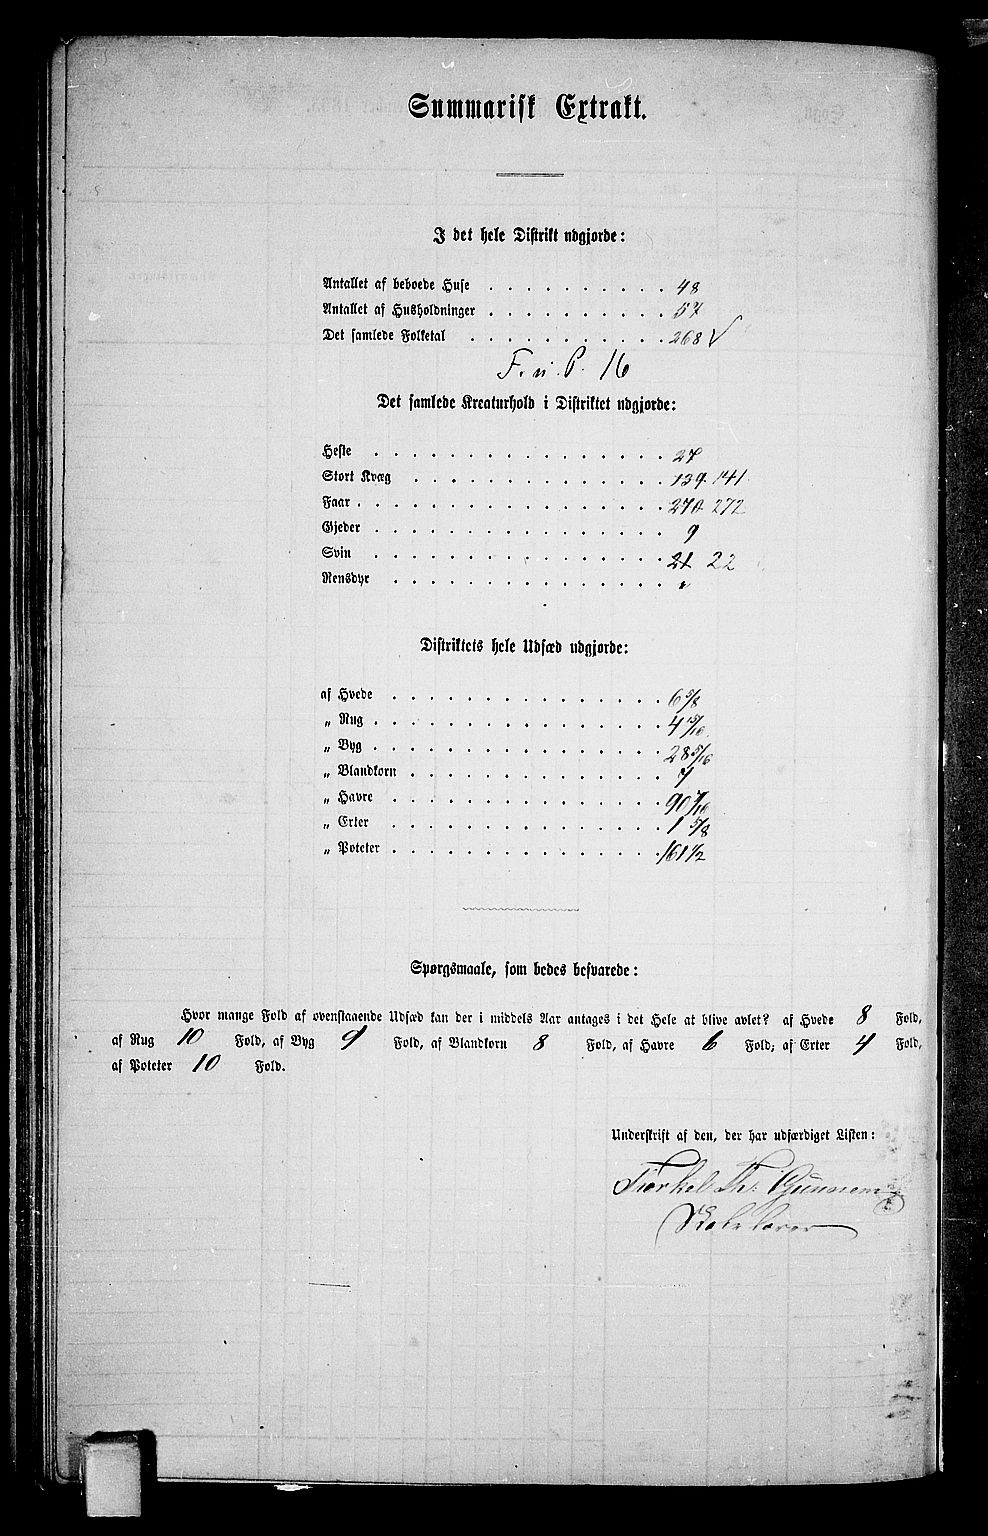 Summarisk Extrakt.
I det hele Distrikt udgjorde:
Antallet af beboede Huse . . . . . . . . . . 48
Antallet af Husholdninger . . . . . . . . . . 57
Det samlede Folketal . . . . . . . . . . . 268 √
F. n. P. 16
Det samlede Kreaturhold i Distriktet udgjorde:
Heste . . . . . . . . . . . . . . . . 27
Stort Kvæg . . . . . . . . . . . . . 139. 141.
Faar . . . . . . . . . . . . . . . . 270. 272
Gjeder . . . . . . . . . . . . . . . 9
Svin . . . . . . . . . . . . . . . . 21 22
Rensdyr . . . . . . . . . . . . . . "
Distriktets hele Udsæd udgjorde:
af Hvede . . . . . . . . . . . . . . 6 5/8
„ Rug . . . . . . . . . . . . . . . 4 15/16
„ Byg . . . . . . . . . . . . . . . 28 5/16
„ Blandkorn . . . . . . . . . . . . . 7
„ Havre . . . . . . . . . . . . . . 90 7/16
„ Erter . . . . . . . . . . . . . . 1 5/8
„ Poteter . . . . . . . . . . . . . . 161 1/2
Spørgsmaale, som bedes besvarede:
Hvor mange Fold af ovenstaaende Udsæd kan der i middels Aar antages i det Hele at blive avlet? af Hvede 8 Fold,
af Rug 10 Fold, af Byg 9 Fold, af Blandkorn 8 Fold, af Havre 6 Fold; af Erter 4 Fold,
af Poteter 10 Fold.
Underskrift af den, der har udfærdiget Listen:
Tiørkel Th.
Skolelærer